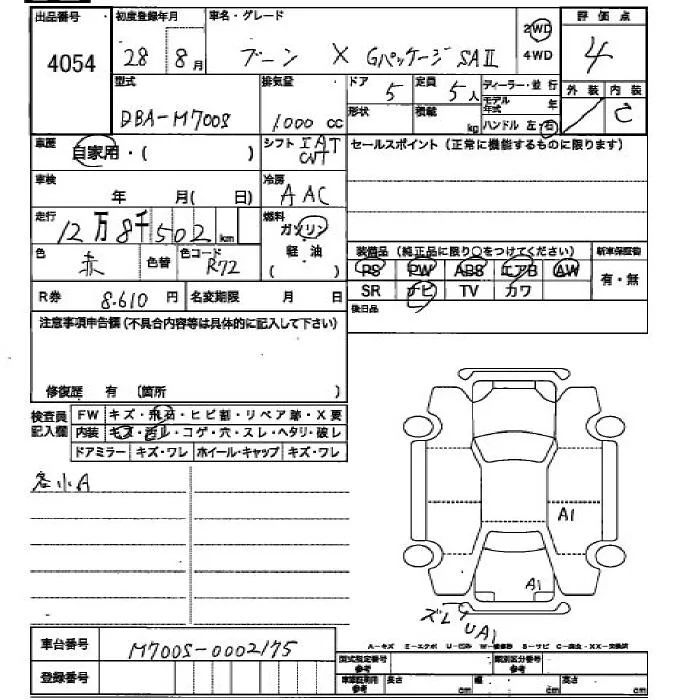 出品番号 初度登録年月 車名・グレード 評価点
4054 28 8月 ブーン X Gパッケージ SAⅡ 2WD 4WD 4
型式 排気量 ドア 定員 ディーラー・並行 外装 内装
DBA-M700S 1000 cc 5 5人 モデル年式 年 C
形状 積載 kg ハンドル 左・右
車歴 自家用・( ) シフト IAT CVT セールスポイント（正常に機能するものに限ります）
車検 年 月( 日) 冷房 AAC
走行 12万8千502km 燃料 ガソリン
軽油
( )
色 赤 色替 色コード R72
装備品（純正品に限り○をつけてください） 新車保証物
PS PW ABS エアB AW 有・無
SR ナビ TV カワ
R券 8.610円 名変期限 月 日
後日品
注意事項申告欄（不具合内容等は具体的に記入して下さい）
修復歴 有 （箇所 ）
検査員記入欄 FW キズ・飛石・ヒビ割・リペア跡・X要
内装 キズ・汚ル・コゲ・穴・スレ・ヘタリ・破レ
ドアミラー キズ・ワレ ホイール・キャップ キズ・ワレ
各小A
A1
A1
ズレ
UA1
車台番号 M700S-0002175
A－キズ E－エクボ U－凹み W－補修跡 S－サビ C－腐食・XX－交換済
登録番号
型式指定番号参考 類別区分番号参考
車庫証明用参考 長さ cm 幅 cm 高さ cm